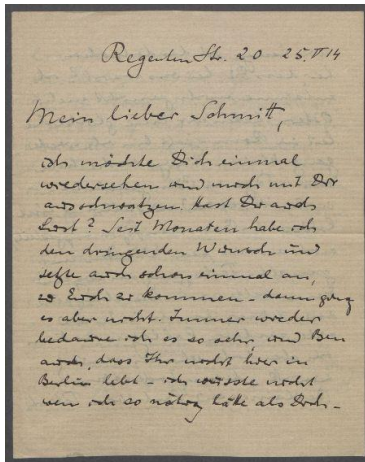 Regenten Str. 20 25.V 14
Mein lieber Schmitt,
ich möchte Dich einmal
wiedersehen und mich mit Dir
ausschwatzen. Hast Du auch
Lust? Seit Monaten habe ich
den dringenden Wunsch und
setzte auch schon einmal an,
zu Euch zu kommen – dann ging
es aber nicht. Immer wieder
bedaure ich es so sehr, und Ben
auch, dass Ihr nicht hier in
Berlin lebt – ich wüsste nicht
wen ich so nötig hätte als Dich –